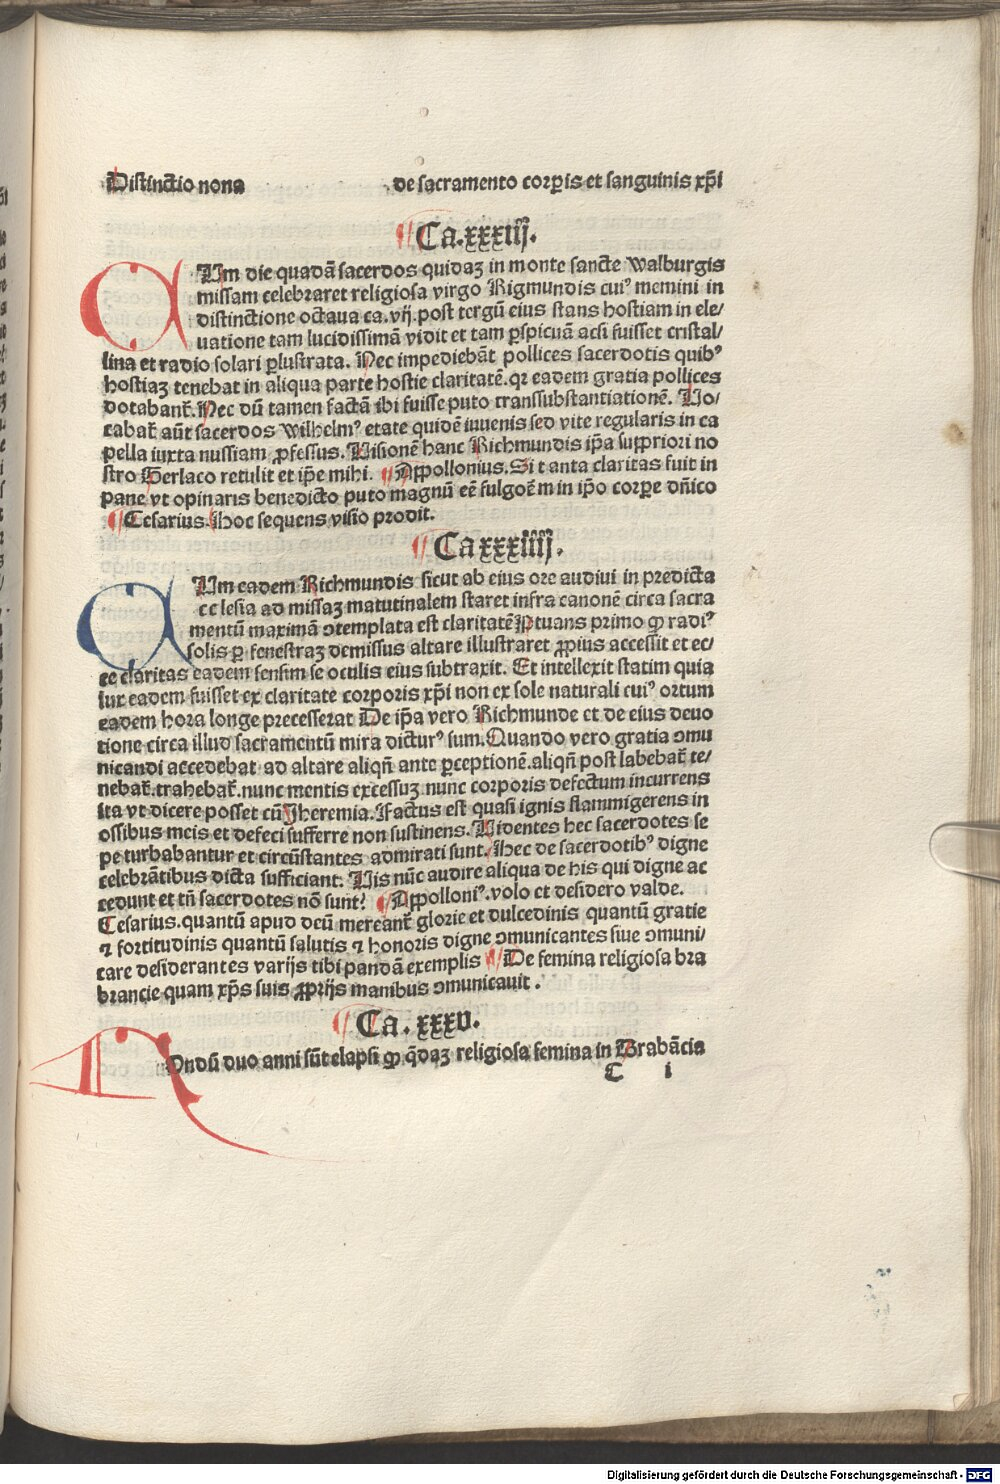 Distinctio nona de sacramento corꝑis et sanguinis xp̄i
¶ Ca.xxxiij.
CUm die quadā sacerdos quidaꝫ in monte sancte walburgis
missam celebraret religiosa virgo Rigmundis cuiꝰ memini in
distinctione octaua ca.vij.post tergū eius stans hostiam in ele/
uatione tam lucidissimā vidit et tam ꝑspicuā acsi fuisset cristal/
lina et radio solari ꝑlustrata. Nec impediebāt pollices sacerdotis quibꝰ
hostiaꝫ tenebat in aliqua parte hostie claritatē.qꝛ eadem gratia pollices
dotabant᷑.Nec dū tamen factā ibi fuisse puto transsubstantiationē. Uo/
cabat᷑ aūt sacerdos wilhelmꝰ etate quidē iuuenis sed vite regularis in ca
pella iuxta nussiam ꝓfessus. Uisionē hanc Richmundis ip̄a suppriori no
stro Gerlaco retulit et ip̄e mihi. ¶ Appollonius.Si t anta claritas fuit in
pane vt opinaris benedicto puto magnū eē fulgoē m in ip̄o corꝑe dn̄ico
¶ Cesarius.Hoc sequens visio prodit.
¶ Ca xxxiiij.
CUm eadem Richmundis sicut ab eius ore audiui in predicta
ec lesia ad missaꝫ matutinalem staret infra canonē circa sacra
mentū maximā ↄtemplata est claritatē Putans primo ꝙ radiꝰ
solis ꝑ fenestraꝫ demissus altare illustraret ꝓpius accessit et ec/
ce claritas eadem sensim se oculis eius subtraxit. Et intellexit statim quia
lux eadem fuisset ex claritate corporis xp̄i non ex sole naturali cuiꝰ ortum
eadem hora longe precesserat De ip̄a vero Richmunde et de eius deuo
tione circa illud sacramentū mira dicturꝰ sum.Quando vero gratia ↄmu
nicandi accedebat ad altare aliqn̄ ante ꝑceptionē.aliqn̄ post labebat᷑ te/
nebat᷑.trahebat᷑.nunc mentis excessuꝫ nunc corporis defectum incurrens
ita vt dicere posset cū Jheremia.Factus est quasi ignis flammigerens in
ossibus meis et defeci sufferre non sustinens.Uidentes hec sacerdotes se
pe turbabantur et circūstantes admirati sunt.Hec de sacerdotibꝰ digne
celebrātibus dicta sufficiant. Uis nūc audire aliqua de his qui digne ac
cedunt et tn̄ sacerdotes nō sunt? ¶ Appolloniꝰ.volo et desidero valde.
Cesarius.quantū apud deū mereant᷑ glorie et dulcedinis quantū gratie
⁊ fortitudinis quantū salutis ⁊ honoris digne ↄmunicantes siue ↄmuni/
care desiderantes varijs tibi pandā exemplis ¶ De femina religiosa bra
brancie quam xp̄s suis ꝓprijs manibus ↄmunicauit .
¶ Ca . xxxv.
NOndū duo anni sūt elapsi ꝙ q̄daꝫ religiosa femina in Brabācia
C i
Digitalisierung gefördert durch die Deutsche Forschungsgemeinschaft - DFG